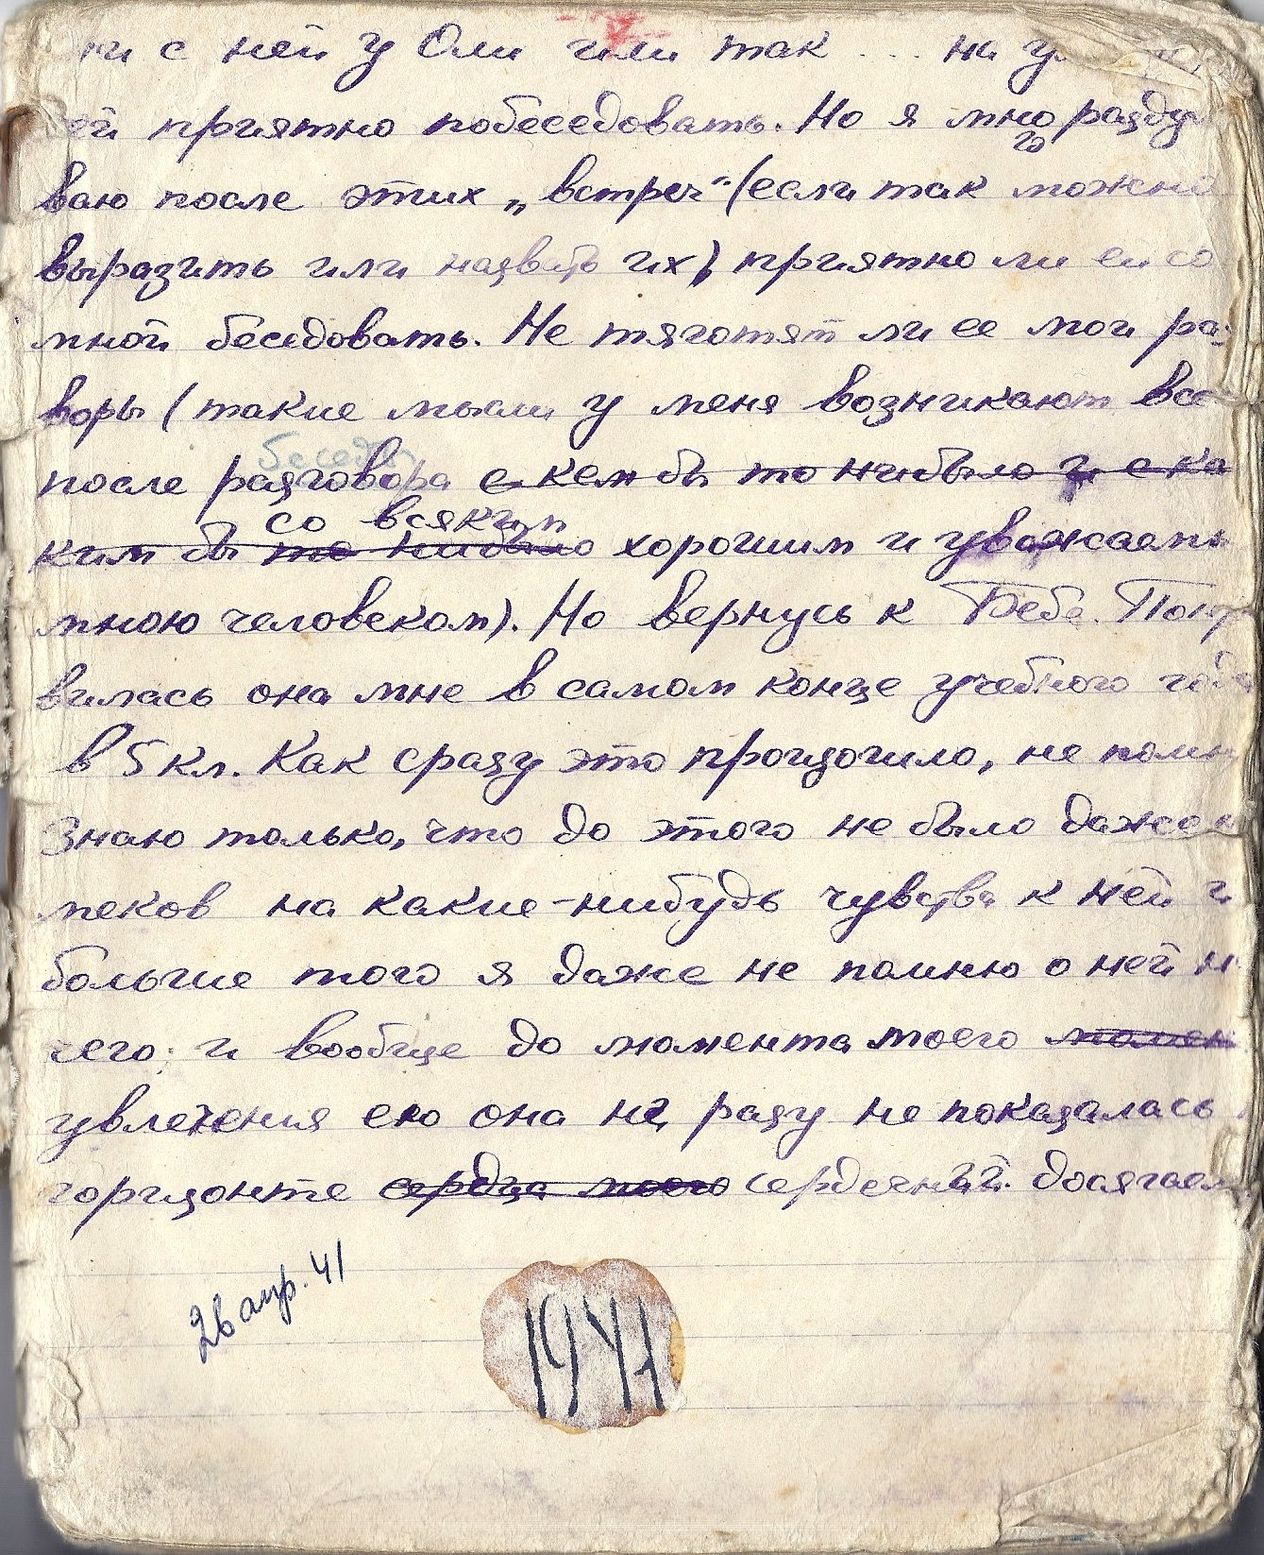 с ней у Оли или так ... на
ей приятно побеседовать. Но я много разду
ваю после этих „встреч“ (если так можно
выразить или назвать их), приятно ли ей со
мной беседовать. Не тяготят ли ее мои раз
воры (такие мысли у меня возникают все
беседы
после разговора с кем бы то нибыло и с ка
со всяким
ким бы то нибыло хорошим и уважаемы
мною человеком). Но вернусь к Бебе. Понра
вилась она мне в самом конце учебного года
в 5 кл. Как сразу это произошло, не помн
Знаю только, что до этого не было даже н
меков на какие-нибудь чувства к ней и
больше того я даже не помню о ней ни
чего; и вообще до момента моего момен
увлечения ею она ни разу не показалась н
горизонте сердца моего сердечной досягаем
26 апр. 41
1941